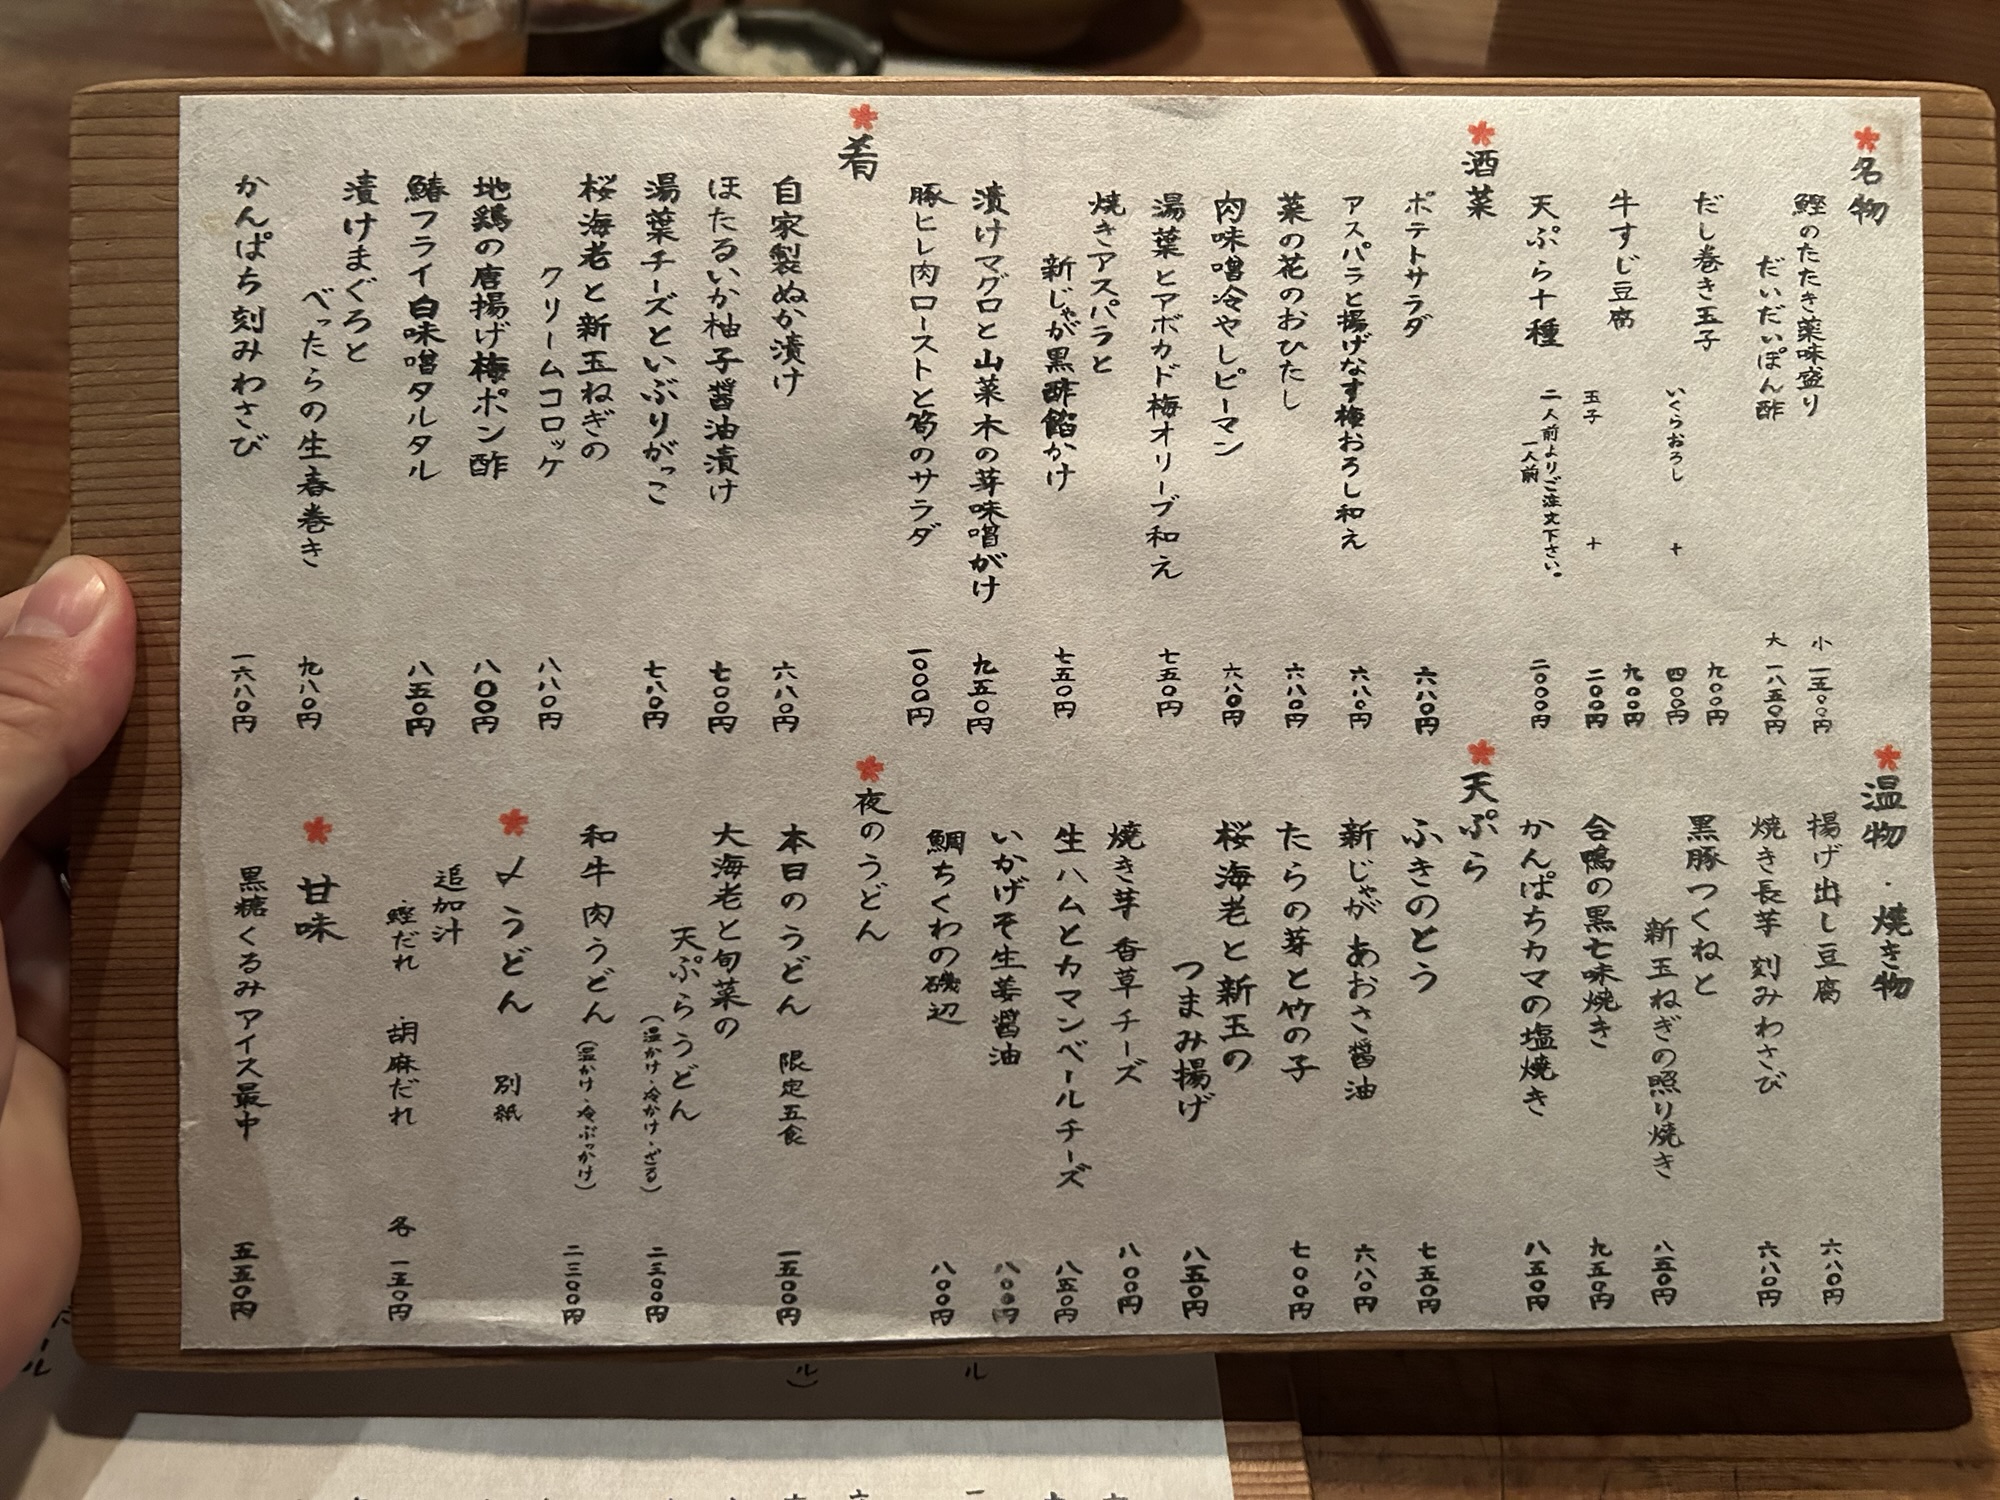 名物
鰹のたたき薬味盛り 小 一五〇〇円
だいだいぽん酢 大 一八五〇円
だし巻き玉子 九〇〇円
いくらおろし + 四〇〇円
牛すじ豆腐 九〇〇円
玉子 + 二〇〇円
天ぷら十種 二人前よりご注文下さい。
一人前 二〇〇〇円
酒菜
ポテトサラダ 六八〇円
アスパラと揚げなす梅おろし和え 六八〇円
菜の花のおひたし 六八〇円
肉味噌冷やしピーマン 六八〇円
湯葉とアボカド梅オリーブ和え 七五〇円
焼きアスパラと
新じゃが黒酢餡かけ 七五〇円
漬けマグロと山菜木の芽味噌がけ 九五〇円
豚ヒレ肉ローストと筍のサラダ 一〇〇〇円
肴
自家製ぬか漬け 六八〇円
ほたるいか柚子醤油漬け 七〇〇円
湯葉チーズといぶりがっこ 七八〇円
桜海老と新玉ねぎの
クリームコロッケ 八八〇円
地鶏の唐揚げ梅ポン酢 八〇〇円
鰆フライ白味噌タルタル 八五〇円
漬けまぐろと
べったらの生春巻き 九八〇円
かんぱち刻みわさび 一六八〇円
温物・焼き物
揚げ出し豆腐 六八〇円
焼き長芋 刻みわさび 六八〇円
黒豚つくねと
新玉ねぎの照り焼き 八五〇円
合鴨の黒七味焼き 九五〇円
かんぱちカマの塩焼き 八五〇円
天ぷら
ふきのとう 七五〇円
新じゃが あおさ醤油 六八〇円
たらの芽と竹の子 七〇〇円
桜海老と新玉の
つまみ揚げ 八五〇円
焼き芋 香草チーズ 八〇〇円
生ハムとカマンベールチーズ 八五〇円
いかげそ生姜醤油 八〇〇円
鯛ちくわの磯辺 八〇〇円
夜のうどん
本日のうどん 限定五食 一五〇〇円
大海老と旬菜の
天ぷらうどん
(温かけ・冷かけ・ざる) 二三〇〇円
和牛肉うどん (温かけ・冷ぶっかけ) 二三〇〇円
〆うどん 別紙
追加汁
鰹だれ 胡麻だれ 各 一五〇円
甘味
黒糖くるみアイス最中 五五〇円